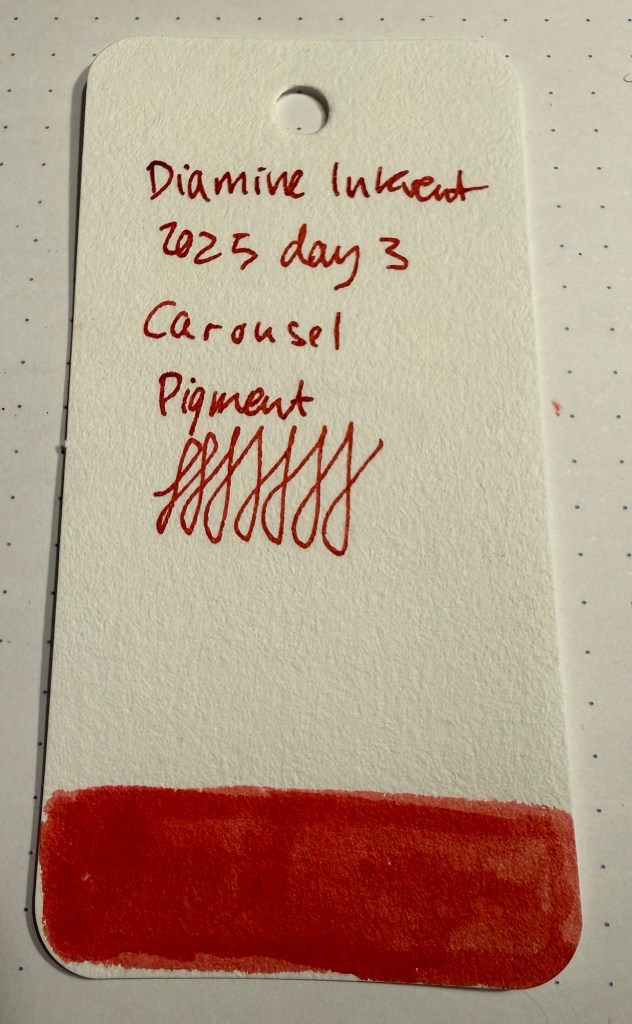 Diamine Inkvent
2025 day 3
Carousel
Pigment